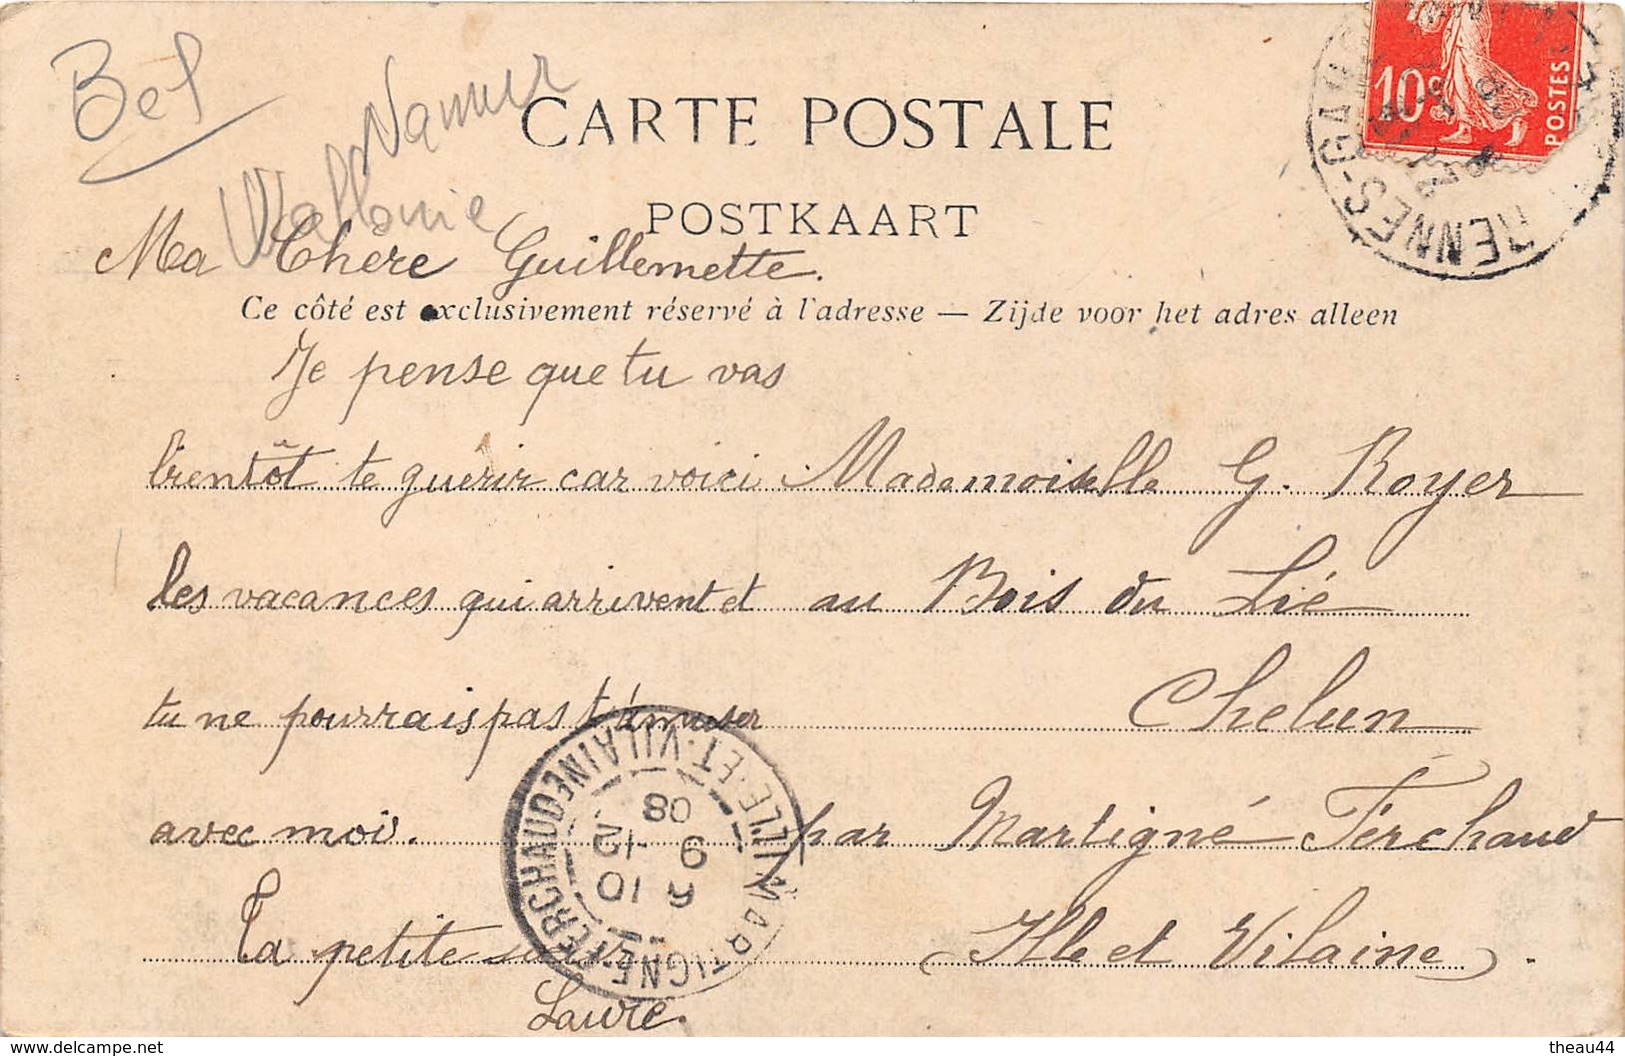 Bel
Namur
Wallonie
CARTE POSTALE
POSTKAART
10c POSTES
RENNES-GARE
Ma Chere Guillemette.
Ce côté est exclusivement réservé à l'adresse — Zijde voor het adres alleen
Je pense que tu vas
bientôt te guérir car voici
les vacances qui arrivent et
tu ne pourrais pas t'amuser
avec moi.
Ta petite sœur
Laure.
Mademoiselle G. Royer
au Bois du Lié
Chelun
par Martigné Ferchaud
(Ille et Vilaine).
MARTIGNE-FERCHAUD ILLE-ET-VILAINE
9 10
9 -12
08
delcampe.net
theau44